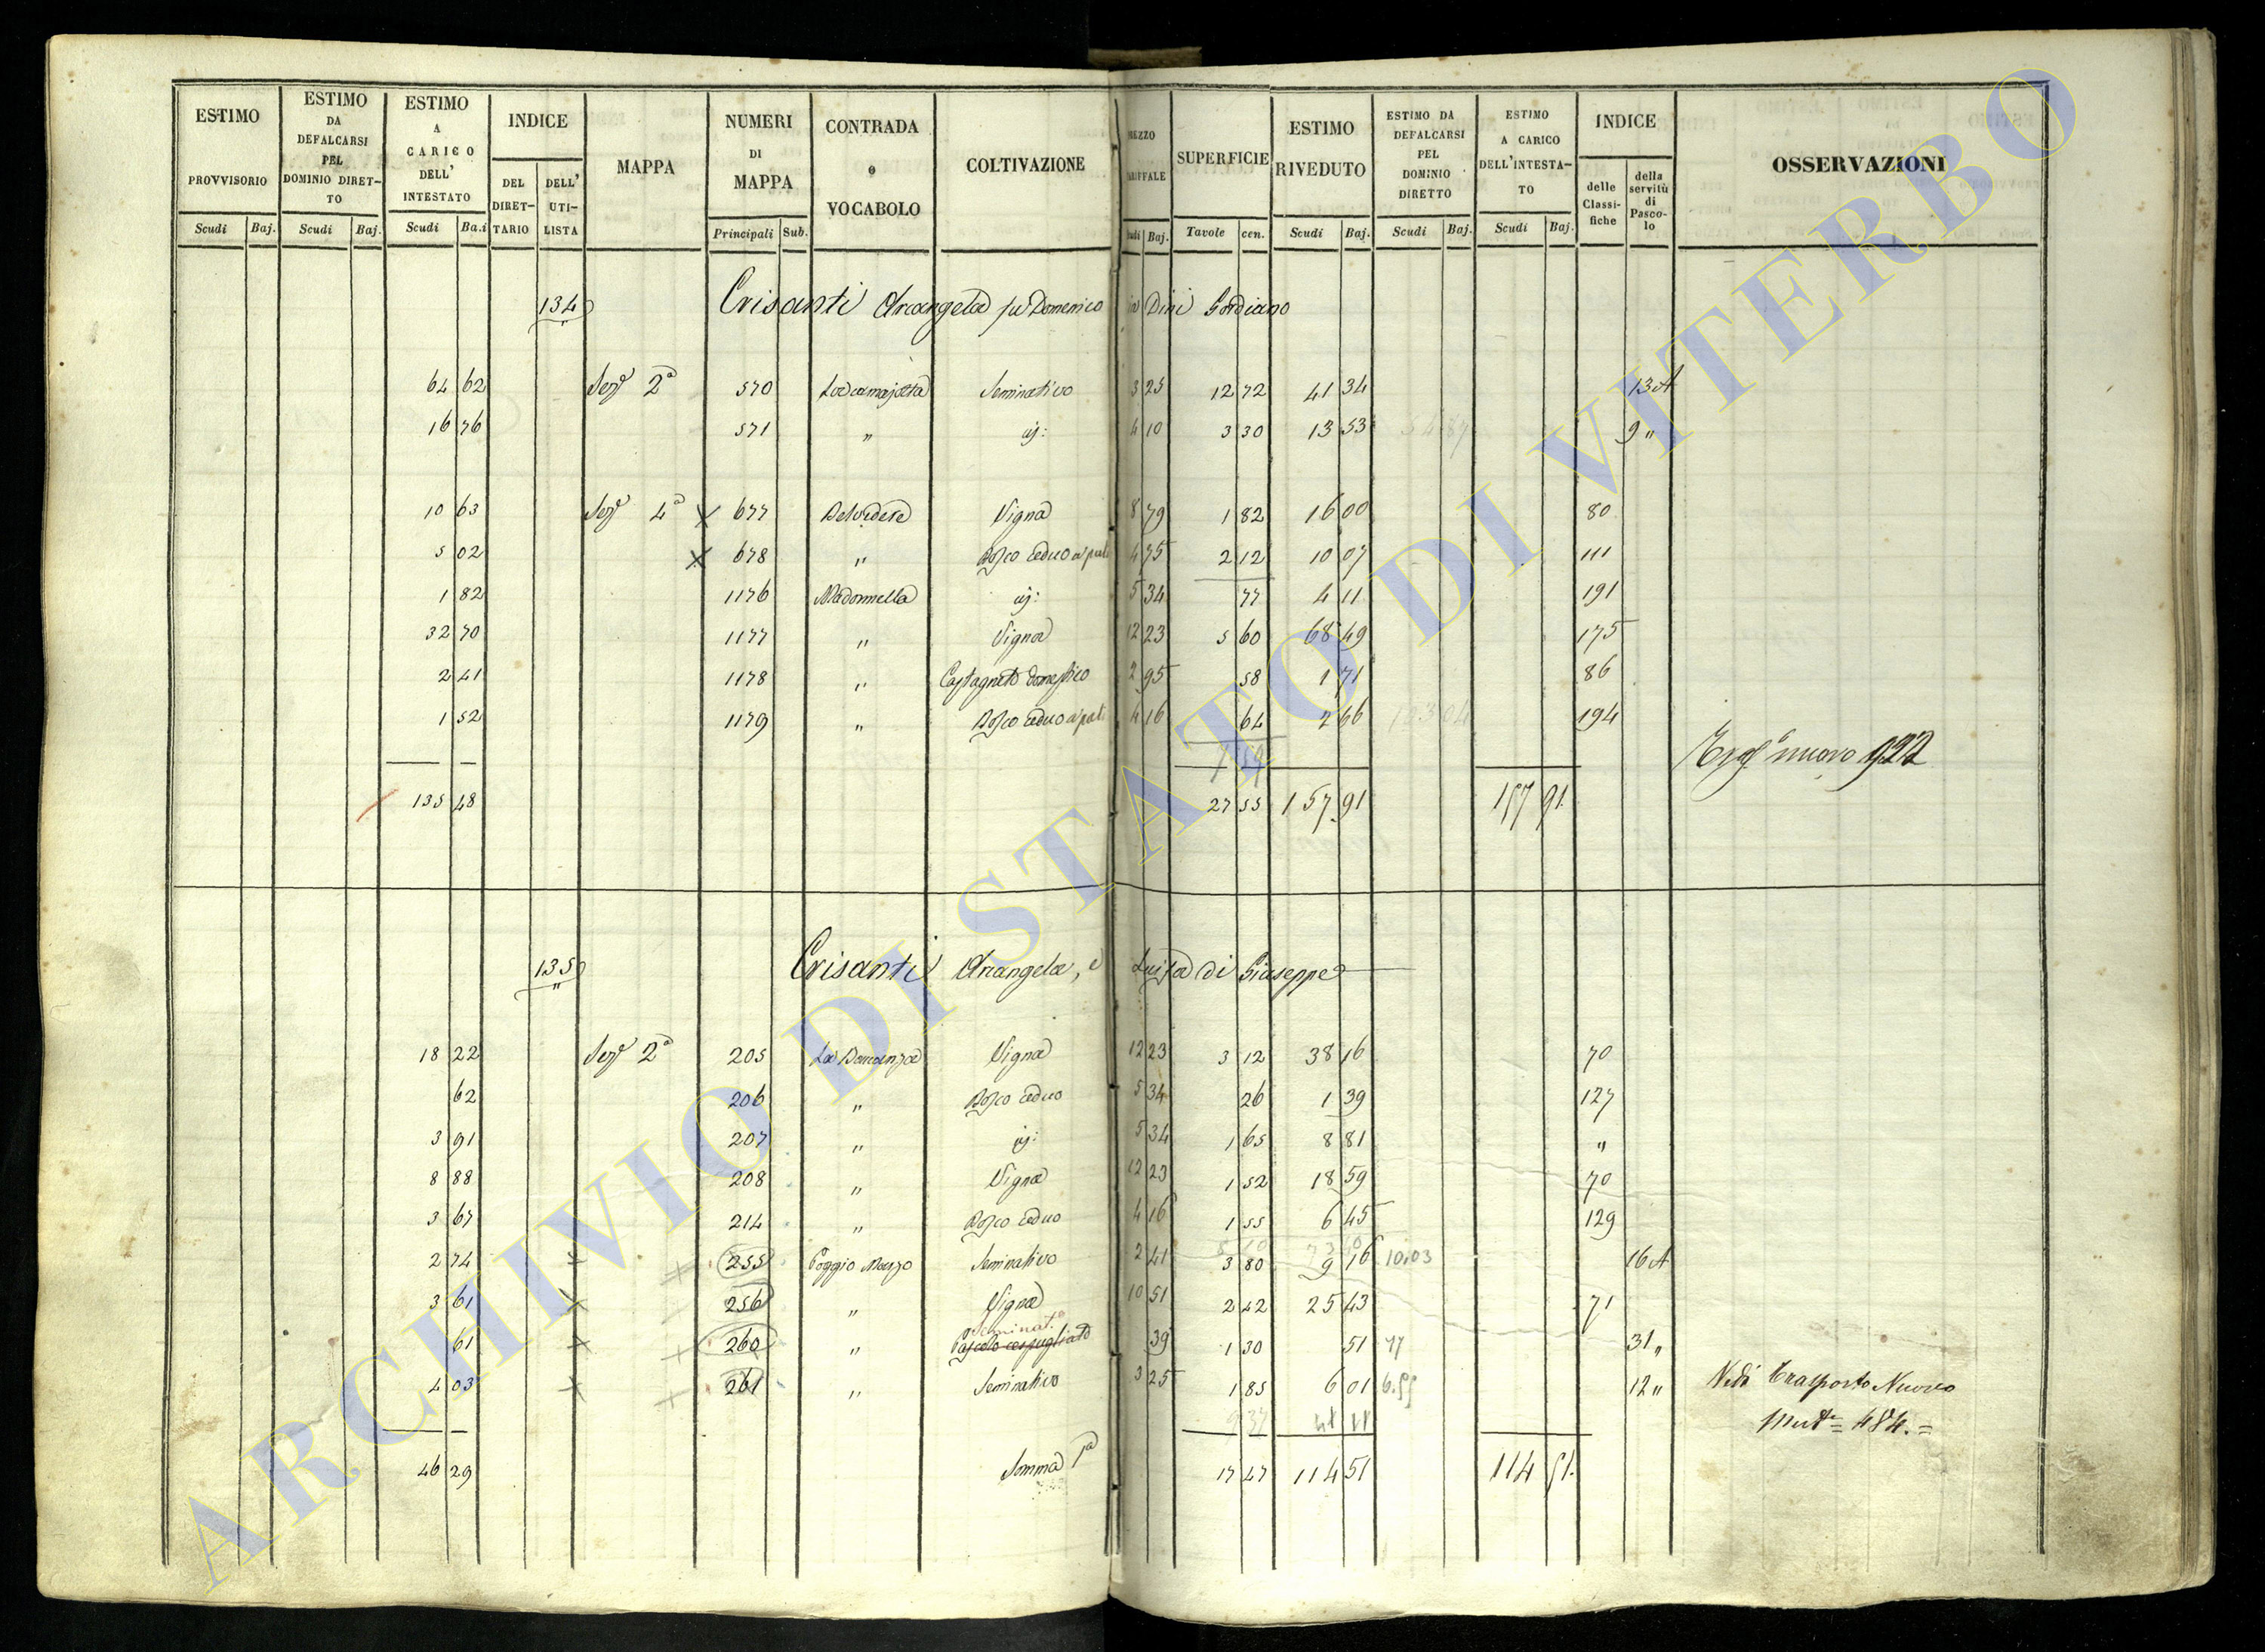 ESTIMO PROVVISORIO | ESTIMO DA DEFALCARSI PEL DOMINIO DIRETTO | ESTIMO A CARICO DELL' INTESTATO | INDICE | MAPPA | NUMERI DI MAPPA | CONTRADA o VOCABOLO | COLTIVAZIONE | SUPERFICIE | ESTIMO RIVEDUTO | ESTIMO DA DEFALCARSI PEL DOMINIO DIRETTO | ESTIMO A CARICO DELL'INTESTATO | INDICE | OSSERVAZIONI
DEL DIRETTARIO | DELL' UTILISTA | delle Classifiche | della servitù di Pascolo
Scudi | Baj. | Scudi | Baj. | Scudi | Ba.i | Principali | Sub. | Baj. | Tavole | cen. | Scudi | Baj. | Scudi | Baj. | Scudi | Baj.
134 Crisanti Arcangela fu Domenico in Dini Gordiano
64 62 Sez.e 2a 570 Seminativo 3 25 12 72 41 34 13 A
16 76 571 " 4 10 3 30 13 53 9 "
10 63 Sez.e 4a x 677 Belvedere Vigna 8 79 1 82 16 00 80
5 02 x 678 " Bosco ceduo a pali 4 75 2 12 10 07 111
1 82 1176 Madonnella 5 34 77 4 11 191
32 70 1177 " Vigna 12 23 5 60 68 49 175
2 41 1178 " Castagneto domestico 2 95 58 1 71 86
1 52 1179 " Bosco ceduo a pali 4 16 64 2 66 123 04 194
nuovo 922
135 48 27 55 157 91 157 91.
135 Crisanti Arcangela, e Luisa di Giuseppe
18 22 Sez.e 2a 205 Vigna 12 23 3 12 38 16 70
62 206 " Bosco ceduo 5 34 26 1 39 127
3 91 207 " 5 34 1 65 8 81 "
8 88 208 " Vigna 12 23 1 52 18 59 70
3 67 214 " Bosco ceduo 4 16 1 55 6 45 129
2 74 x 255 Poggio Seminativo 2 41 3 80 9 16 10.03 16 A
3 61 x 256 " Vigna 10 51 2 42 25 43 71
Seminat.o
61 x 260 " Pascolo cespugliato 39 1 30 51 77 31 "
4 03 x 261 " Seminativo 3 25 1 85 6 01 12 "
Vedi Trasporto Nuovo
484. =
46 29 Somma 17 47 114 51 114 51.
ARCHIVIO DI STATO DI VITERBO